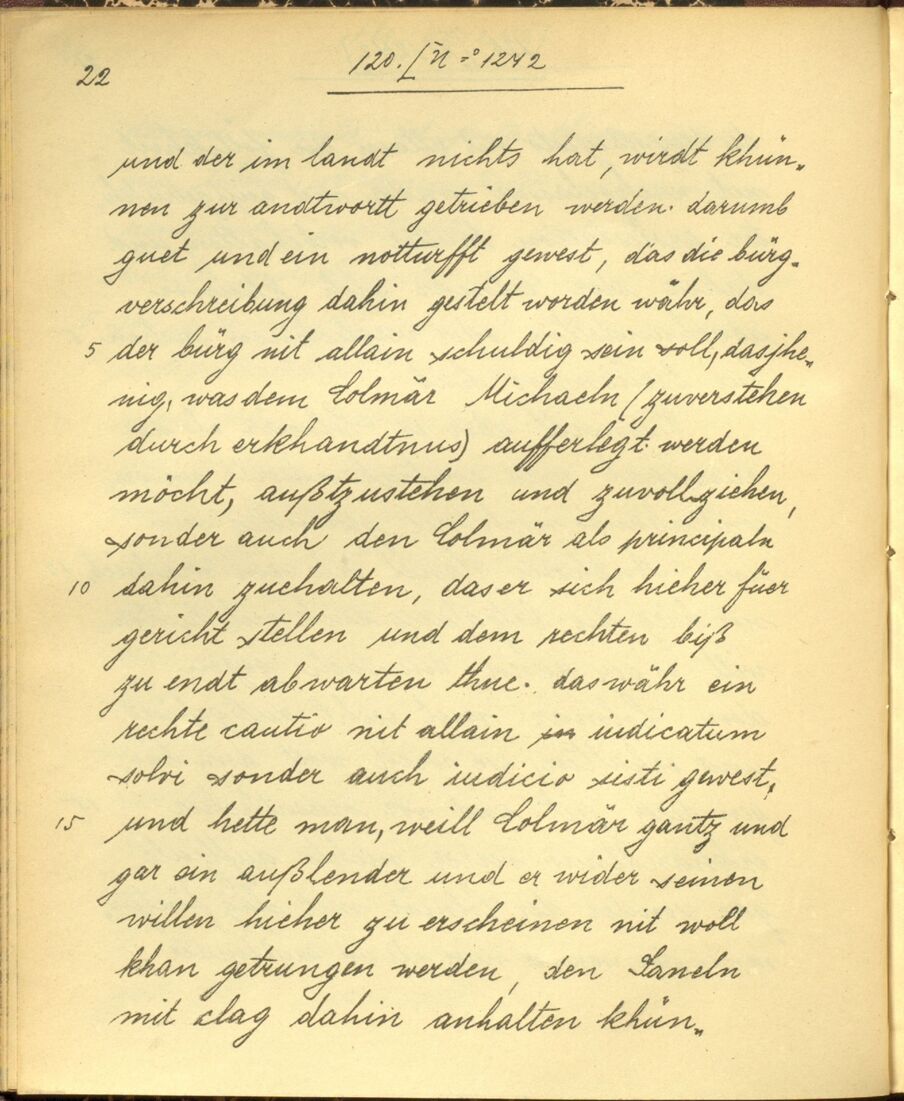 22
120. I N=o 1242
und der im landt nichts hat, wirdt khün„
nen zur andtwortt getrieben werden. darumb
guet und ein notturfft gewest, das die bürg„
verschreibung dahin gestelt worden währ, das
5 der bürg nit allain schuldig sein soll, dasjhe„
nig, was dem Colmär Michaeln (zuverstehen
durch erkhandtnus) aufferlegt werden
möcht, außtzustehen und zuvollziehen,
sonder auch den Colmär als principaln
10 dahin zuehalten, das er sich hieher füer
gericht stellen und dem rechten biß
zu endt abwarten thue. das währ ein
rechte cautio nit allain in iudicatum
solvi sonder auch iudicio sisti gewest,
15 und hette man, weill Colmär gantz und
gar ein außlender und er wider seinen
willen hieher zu erscheinen nit woll
khan getrungen werden, den Laneln
mit clag dahin anhalten khün„